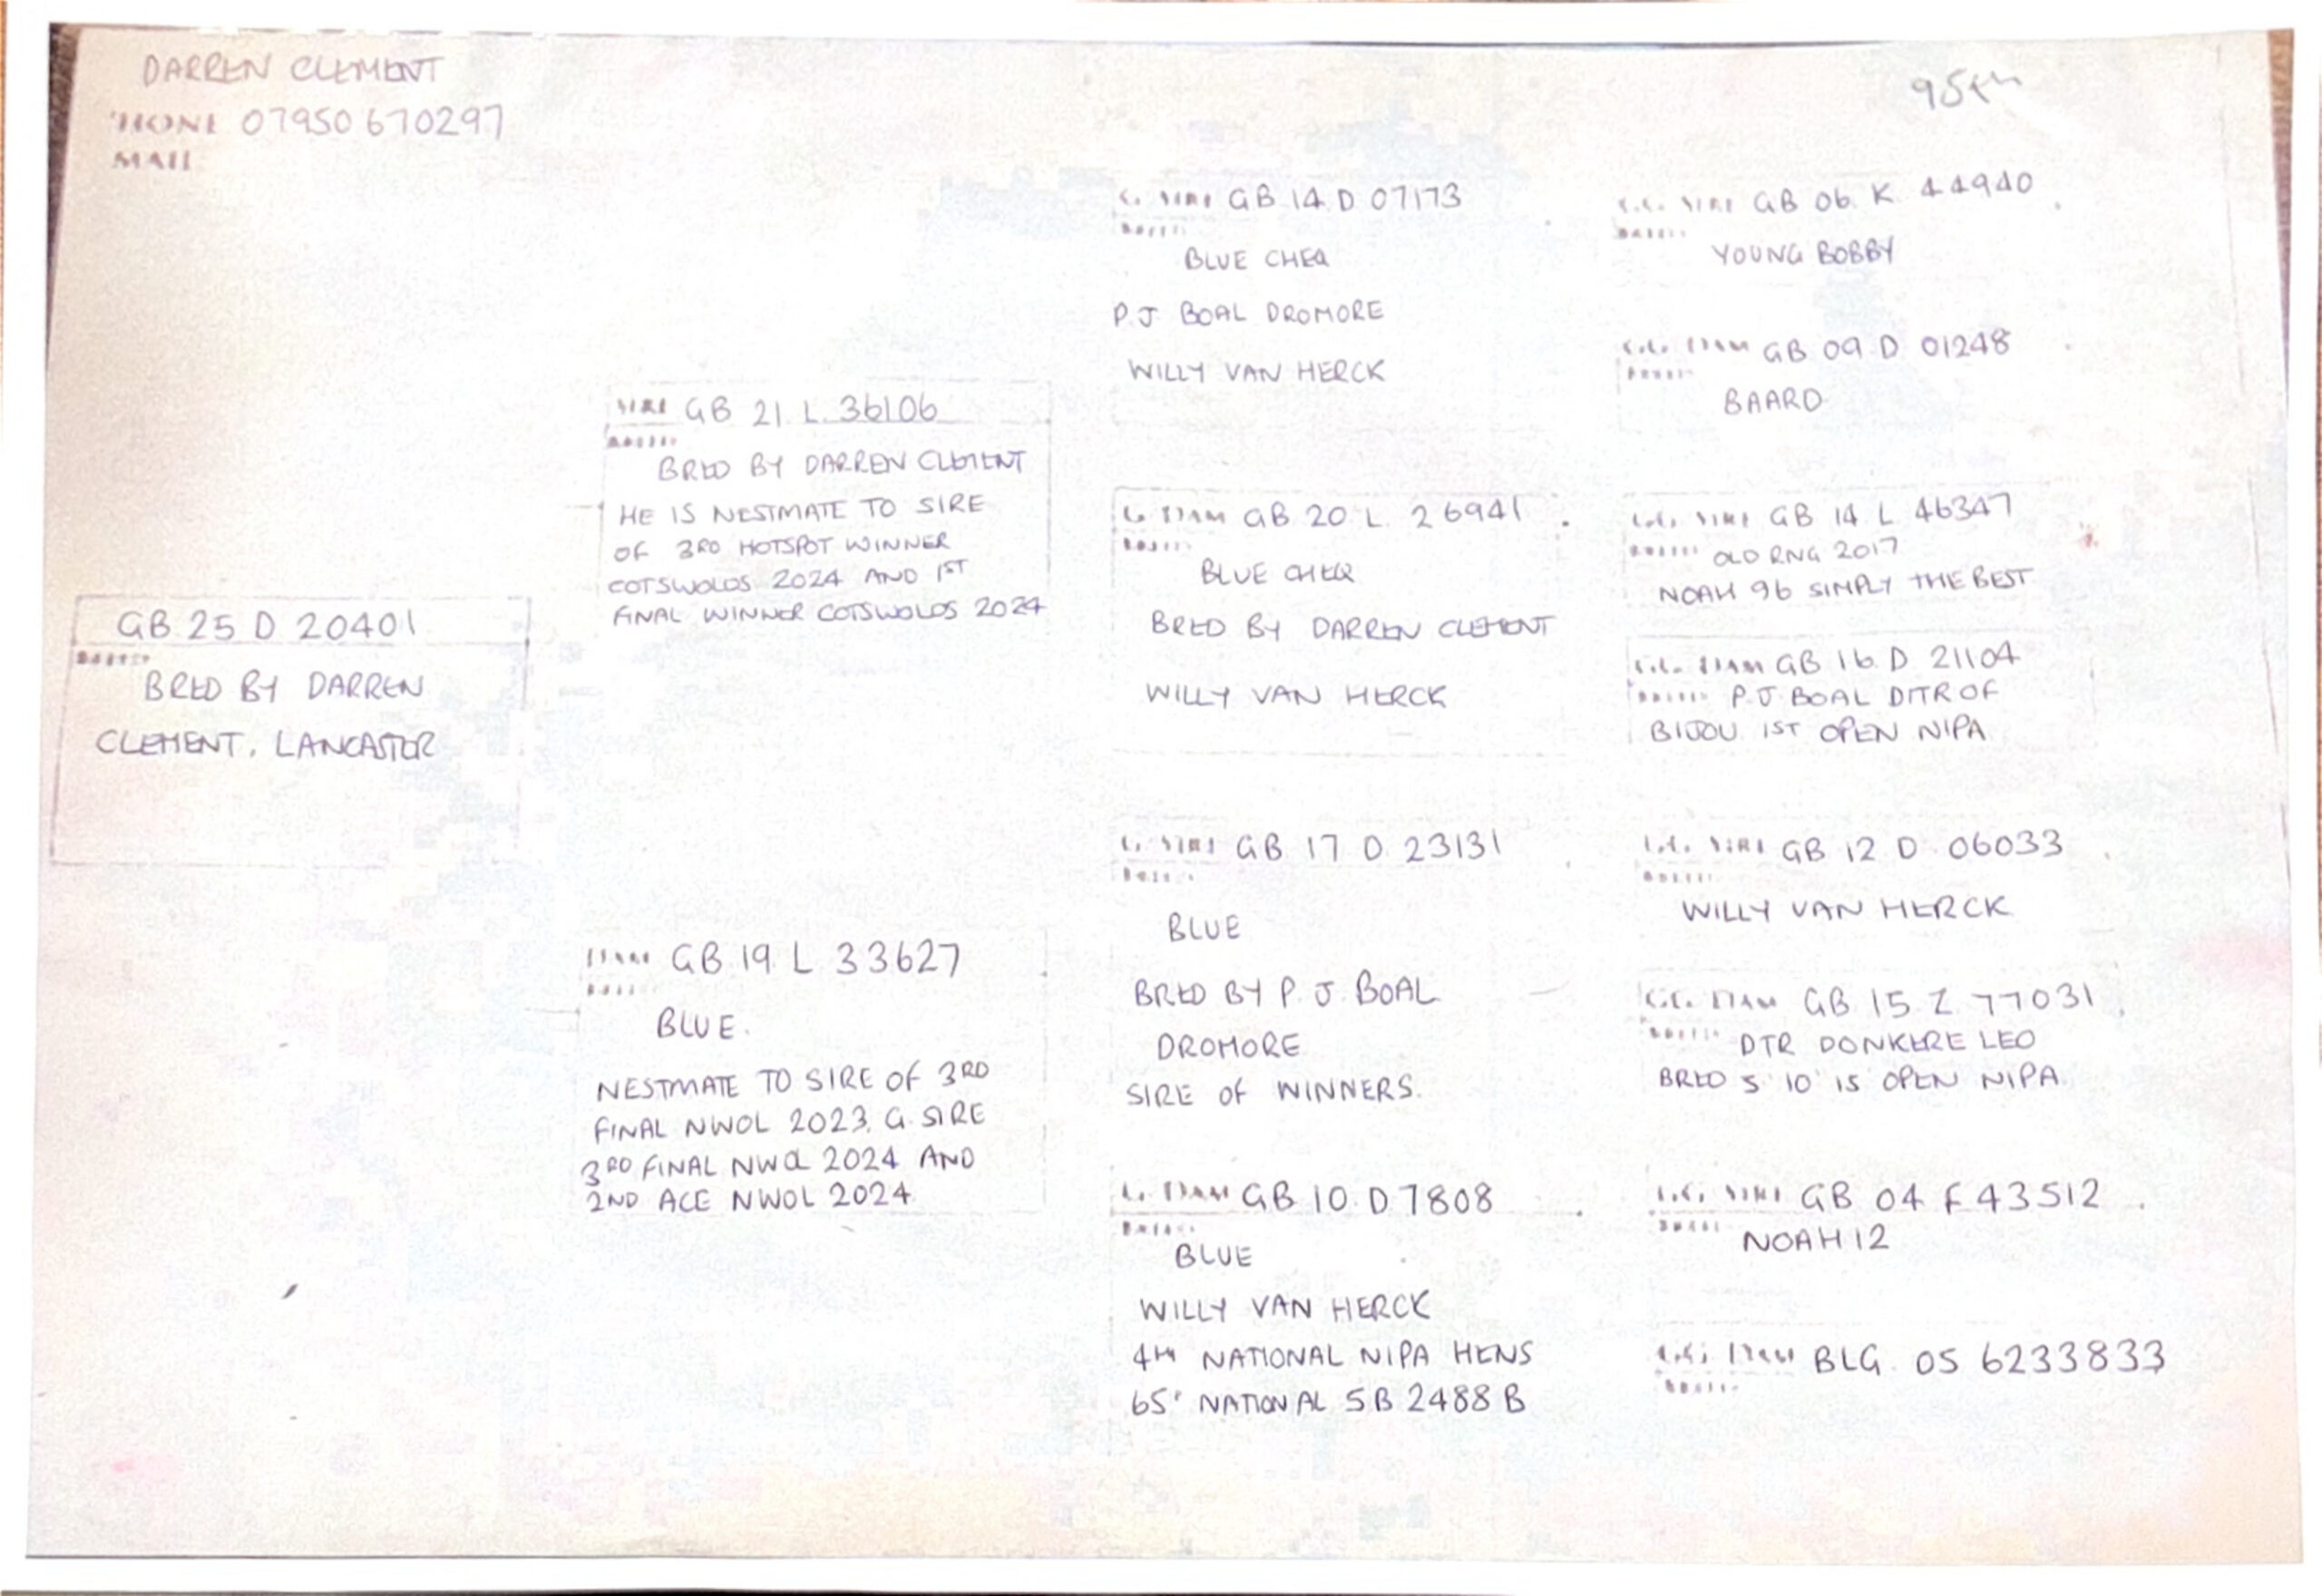 DARREN CLEMENT
PHONE 07950 670297
MAIL
95
GB 25 D 20401
BRED BY DARREN
CLEMENT. LANCASTER
SIRE GB 21 L 36106
BRED BY DARREN CLEMENT
HE IS NESTMATE TO SIRE
OF 3RD HOTSPOT WINNER
COTSWOLDS 2024 AND 1ST
FINAL WINNER COTSWOLDS 2024
DAM GB 19 L 33627
BLUE.
NESTMATE TO SIRE OF 3RD
FINAL NWOL 2023. G. SIRE
3RD FINAL NWOL 2024 AND
2ND ACE NWOL 2024
G. SIRE GB 14 D 07173
BLUE CHEQ
P.J BOAL DROMORE
WILLY VAN HERCK
G. DAM GB 20 L 26941
BLUE CHEQ
BRED BY DARREN CLEMENT
WILLY VAN HERCK
G. SIRE GB 17 D 23131
BLUE
BRED BY P. J. BOAL
DROMORE
SIRE OF WINNERS.
G. DAM GB 10 D 7808
BLUE
WILLY VAN HERCK
4TH NATIONAL NIPA HENS
65' NATIONAL 5B 2488 B
G.G. SIRE GB 06 K 44940
YOUNG BOBBY
G.G. DAM GB 09 D 01248
BAARD
G.G. SIRE GB 14 L 46347
OLD RNG 2017
NOAH 96 SIMPLY THE BEST
G.G. DAM GB 16 D 21104
P.J BOAL DTR OF
BIJOU 1ST OPEN NIPA
G.G. SIRE GB 12 D 06033
WILLY VAN HERCK
G.G. DAM GB 15 Z 77031
DTR DONKERE LEO
BRED 5' 10' 15 OPEN NIPA
G.G. SIRE GB 04 F 43512
NOAH 12
G.G. DAM BLG 05 6233833